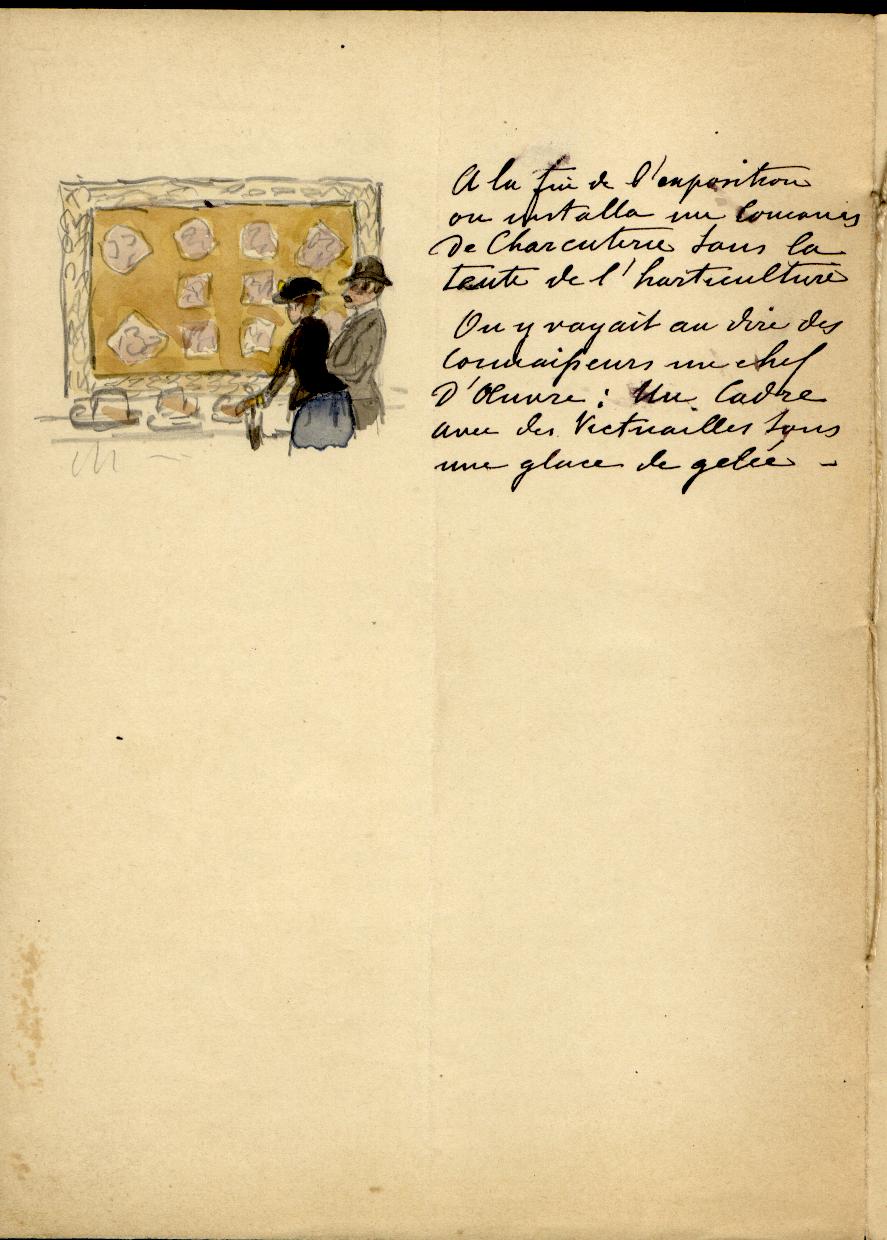 A la fin de l'exposition
on installa un Concours
de Charcuterie sous la
tente de l'horticulture
On y voyait au dire des
connaisseurs un chef
D'Œuvre : Un Cadre
avec des Victuailles sous
une glace de gelée -